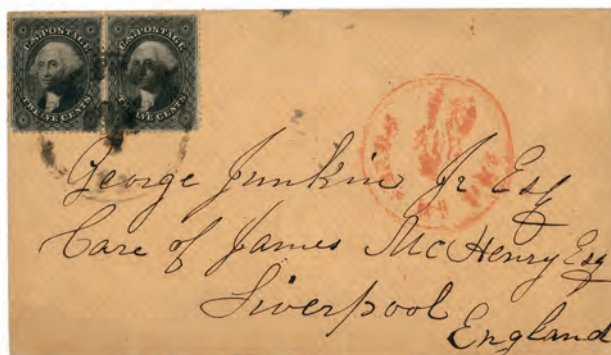 U.S. POSTAGE
TWELVE CENTS
U.S. POSTAGE
TWELVE CENTS
George Junkin Jr Esq
Care of James McHenry Esq
Liverpool
England